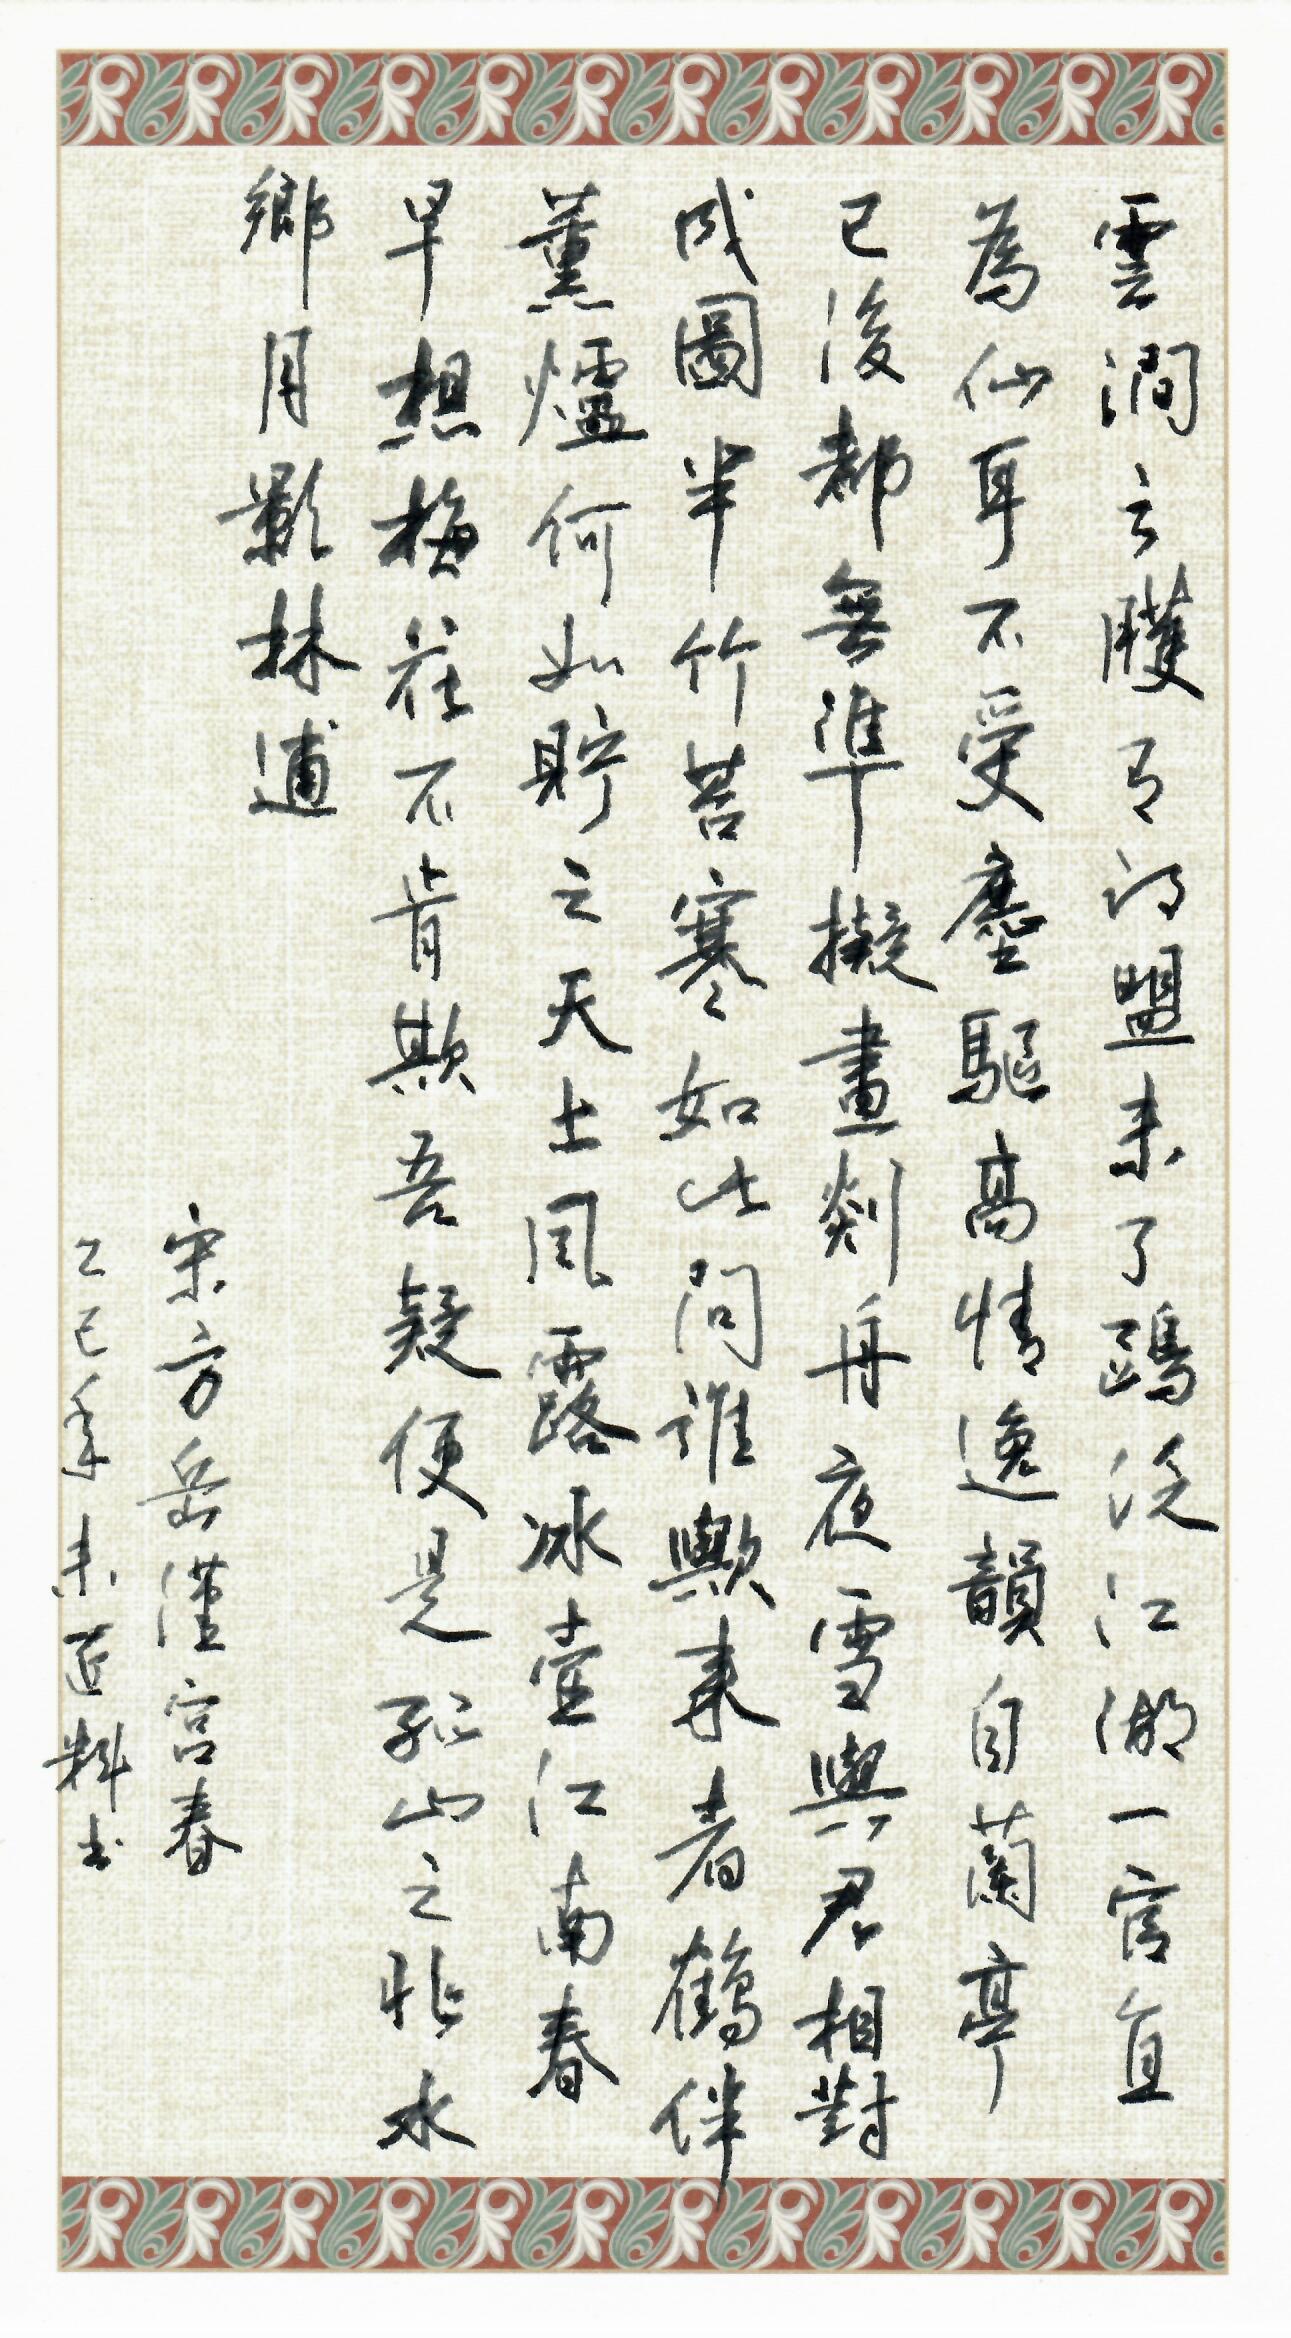 雲澗之臞有詩盟未了鷗淡江湖一官直
為仙耳不受塵驅高情逸韻自蘭亭
已後都無準擬畫剡舟夜雪與君相對
成圖半竹苔寒如此問誰歟來者鶴伴
薰爐何如貯之天上風露冰壺江南春
早想梅花不肯欺吾疑便是孤山之非水
鄉月影林逋
宋方岳漢宮春
乙巳年未 料書